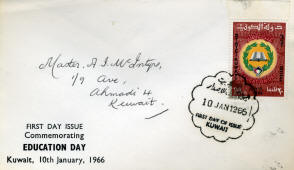 دولة الكويت
Master. A. I. McIntyre,
1/9 Ave,
Ahmadi 4
Kuwait.
10 JAN 1966
FIRST DAY OF ISSUE
KUWAIT
FIRST DAY ISSUE
Commemorating
EDUCATION DAY
Kuwait, 10th January, 1966